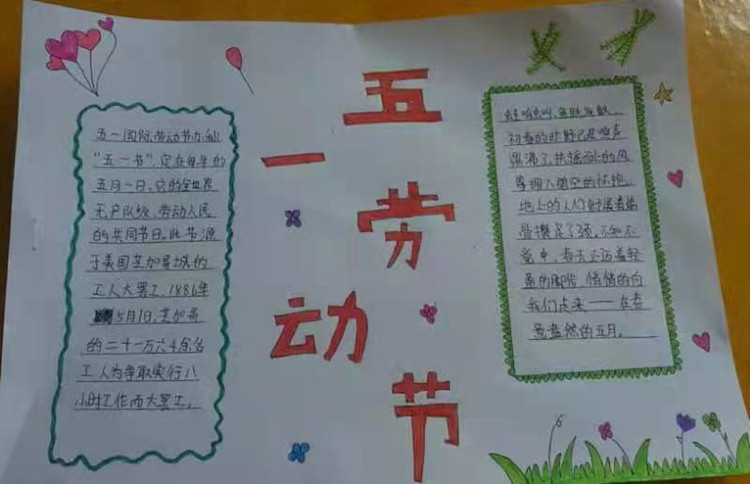 五一劳动节
五一国际劳动节亦称
“五一节”,定在每年的
五月一日,它的全世界
无产阶级、劳动人民
的共同节日。此节源
于美国芝加哥城的
工人大罢工,1886年
5月1日,芝加哥
的二十一万六千余名
工人为争取实行八
小时工作而大罢工。
初春的旷野已是鸣声
鼎沸了,扶摇而上的风
筝拥入碧空的怀抱,
地上的人们舒展着
觉中,春天正迈着轻
盈的脚步,悄悄的向
我们走来——在春
意盎然的五月。